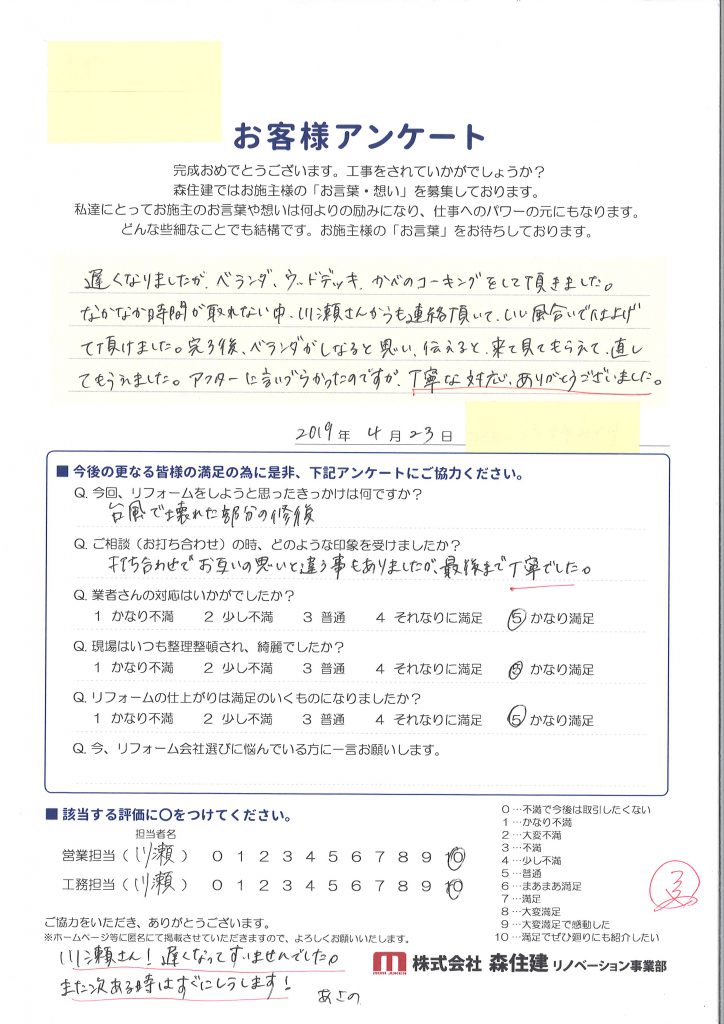 お客様アンケート
完成おめでとうございます。工事をされていかがでしょうか?
森住建ではお施主様の「お言葉・想い」を募集しております。
私達にとってお施主のお言葉や想いは何よりの励みになり、仕事へのパワーの元にもなります。
どんな些細なことでも結構です。お施主様の「お言葉」をお待ちしております。
遅くなりましたが、ベランダ、ウッドデッキ、かべのコーキングをして頂きました。
なかなか時間が取れない中、川瀬さんからも連絡頂いて、いい風合いで仕上げ
て頂けました。完了後、ベランダがしなると思い、伝えると、来て見てもらえて、直し
てもらえました。アフターに言いづらかったのですが、丁寧な対応、ありがとうございました。
2019年 4月23日
■ 今後の更なる皆様の満足の為に是非、下記アンケートにご協力ください。
Q. 今回、リフォームをしようと思ったきっかけは何ですか?
台風で壊れた部分の修復
Q. ご相談(お打ち合わせ)の時、どのような印象を受けましたか?
打ち合わせでお互いの思いと違う事もありましたが、最後まで丁寧でした。
Q. 業者さんの対応はいかがでしたか?
1 かなり不満 2 少し不満 3 普通 4 それなりに満足 5 かなり満足
Q. 現場はいつも整理整頓され、綺麗でしたか?
1 かなり不満 2 少し不満 3 普通 4 それなりに満足 5 かなり満足
Q. リフォームの仕上がりは満足のいくものになりましたか?
1 かなり不満 2 少し不満 3 普通 4 それなりに満足 5 かなり満足
Q. 今、リフォーム会社選びに悩んでいる方に一言お願いします。
■ 該当する評価に〇をつけてください。
担当者名
営業担当(川瀬) 0 1 2 3 4 5 6 7 8 9 10
工務担当(川瀬) 0 1 2 3 4 5 6 7 8 9 10
0…不満で今後は取引したくない
1…かなり不満
2…大変不満
3…不満
4…少し不満
5…普通
6…まあまあ満足
7…満足
8…大変満足
9…大変満足で感動した
10…満足でぜひ廻りにも紹介したい
ご協力をいただき、ありがとうございます。
※ホームページ等に匿名にて掲載させていただきますので、よろしくお願いいたします。
川瀬さん!遅くなってすいませんでした。
また次ある時はすぐにしうします!
あさの
MORI JUKEN
株式会社 森住建 リノベーション事業部